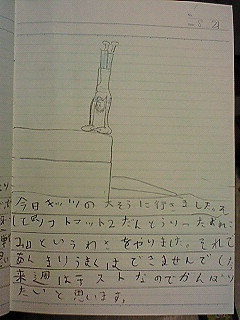 8 21
今日キッツの大そうに行きました。そ
してソフトマット2だんとうりったおれこ
みというわざをやりました。それで
あんまりうまくはできませんでした
来週はテストなのでがんばり
たいと思います。